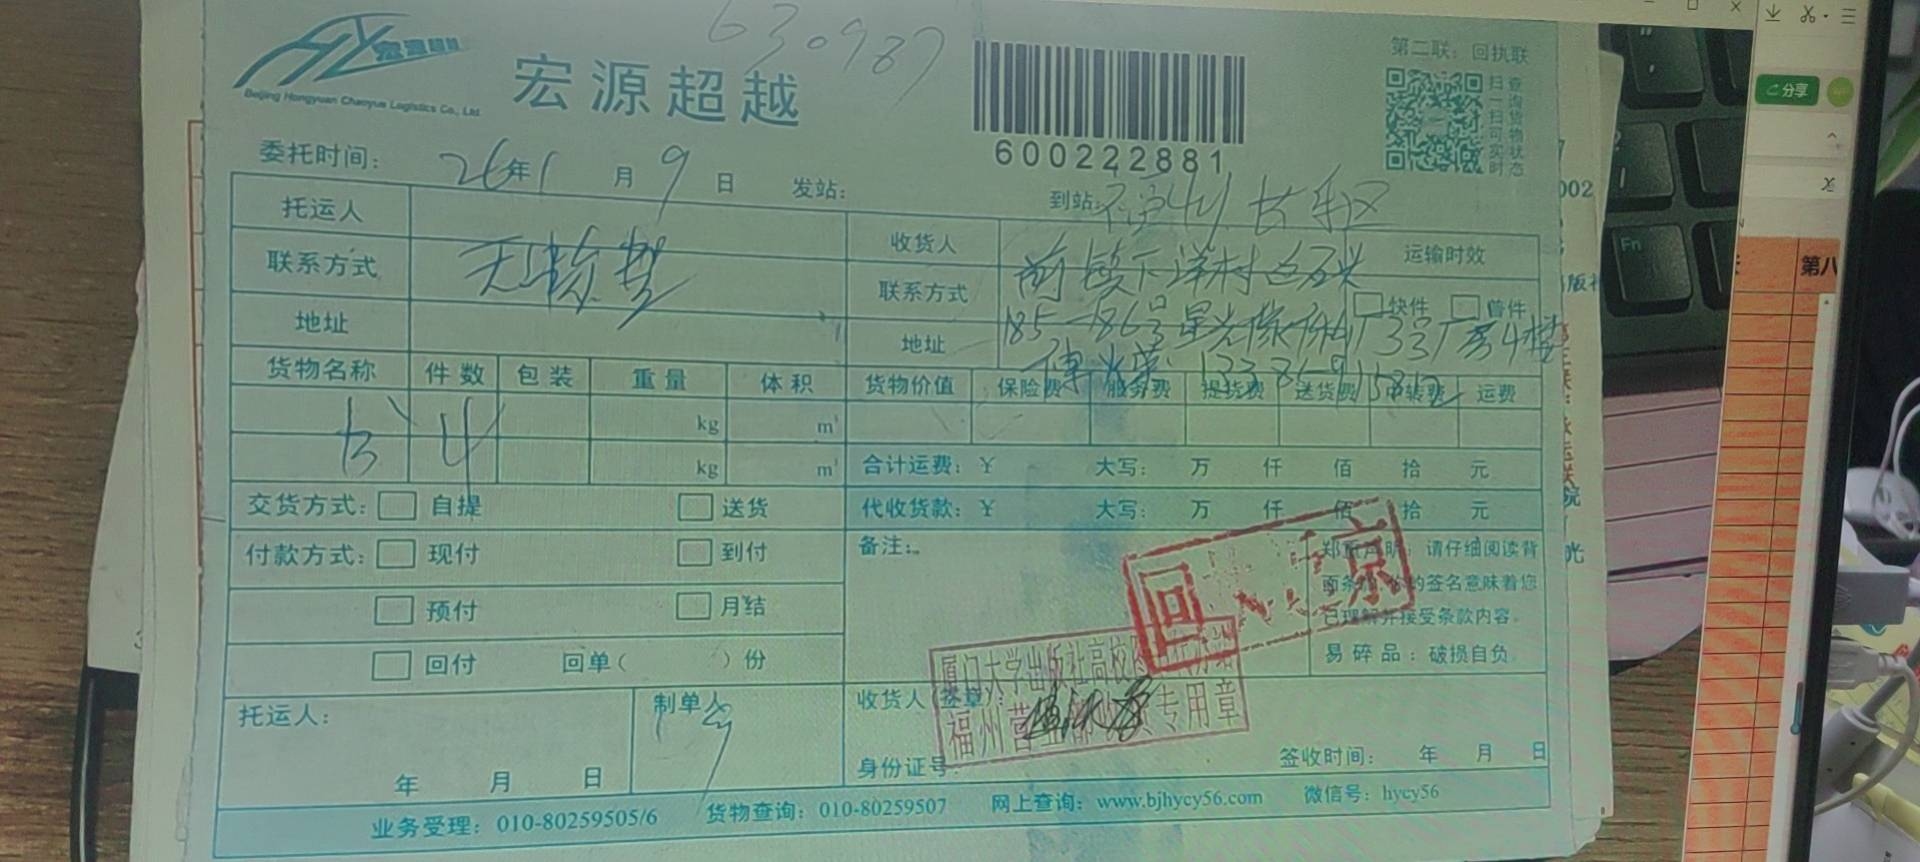 630987
第二联：回执联
宏源超越
Beijing Hongyuan Chaoyue Logistics Co., Ltd
宏源超越
600222881
扫一扫可实时
查询货物状态
委托时间： 26年1月9日 发站： 到站：福州长乐区
托运人
收货人
运输时效
联系方式
联系方式 前
快件 普件
地址
地址 185-186号星光 3号厂房4楼
133
货物名称 件数 包装 重量 体积 货物价值 保险费 服务费 提货费 送货费 中转费 运费
书 4 kg m³
kg m³
合计运费：¥ 大写： 万 仟 佰 拾 元
交货方式： 自提 送货
代收货款：¥ 大写： 万 仟 佰 拾 元
付款方式： 现付 到付
备注：
郑重声明：请仔细阅读背
面条款，您的签名意味着您
已理解并接受条款内容。
易碎品：破损自负
预付 月结
回付 回单（ ）份
回 京
厦门大学出版社高校
福州营业部 专用章
托运人：
年 月 日
制单人
收货人（签章）：
身份证号：
签收时间： 年 月 日
业务受理：010-80259505/6 货物查询：010-80259507 网上查询：www.bjhycy56.com 微信号：hycy56
分享
第八
002
Fn